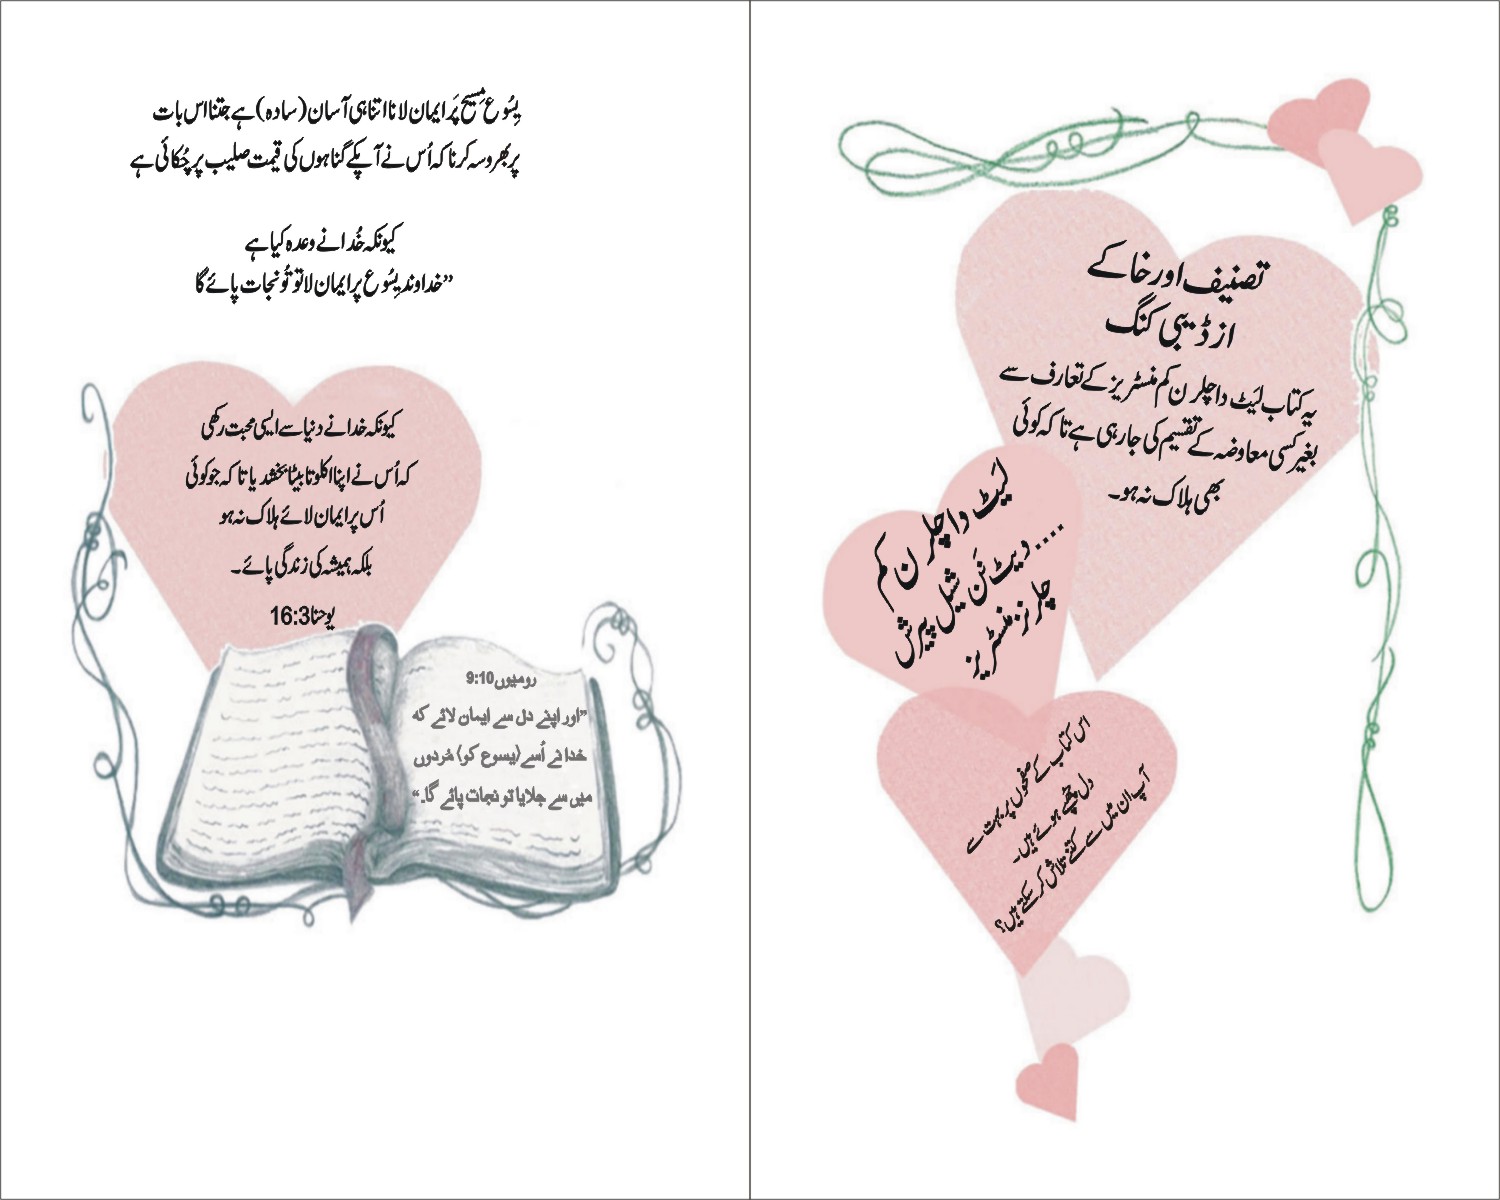 تصنیف اور خاکے
از ڈیبی کنگ
یہ کتاب لَیٹ دا چلرن کم منسٹریز کے تعارف سے
بغیر کسی معاوضہ کے تقسیم کی جا رہی ہے تا کہ کوئی
بھی ہلاک نہ ہو۔
لَیٹ دا چلرن کم
....ویٹ نَن شیل پیرش
چلرنز منسٹریز
اس کتاب کے صفحوں پر بہت سے
دل چھپے ہوئے ہیں۔
آپ ان میں سے کتنے تلاش کر سکتے ہیں؟
یِسُوع مِسیح پَر ایمان لانا اتنا ہی آسان (سادہ) ہے جتنا اس بات
پر بھروسہ کرنا کہ اُس نے آپکے گناہوں کی قیمت صلیب پر چُکائی ہے
کیونکہ خُدا نے وعدہ کیا ہے
”خداوند یِسُوع پر ایمان لا تو تُو نجات پائے گا
کیونکہ خدا نے دنیا سے ایسی محبت رکھی
کہ اُس نے اپنا اکلوتا بیٹا بخشد یا تا کہ جو کوئی
اُس پر ایمان لائے ہلاک نہ ہو
بلکہ ہمیشہ کی زندگی پائے۔
یوحنا16:3
رومیوں9:10
”اور اپنے دل سے ایمان لائے کہ
خدا نے اُسے(یسوع کو) مُردوں
میں سے جلایا تو نجات پائے گا۔“